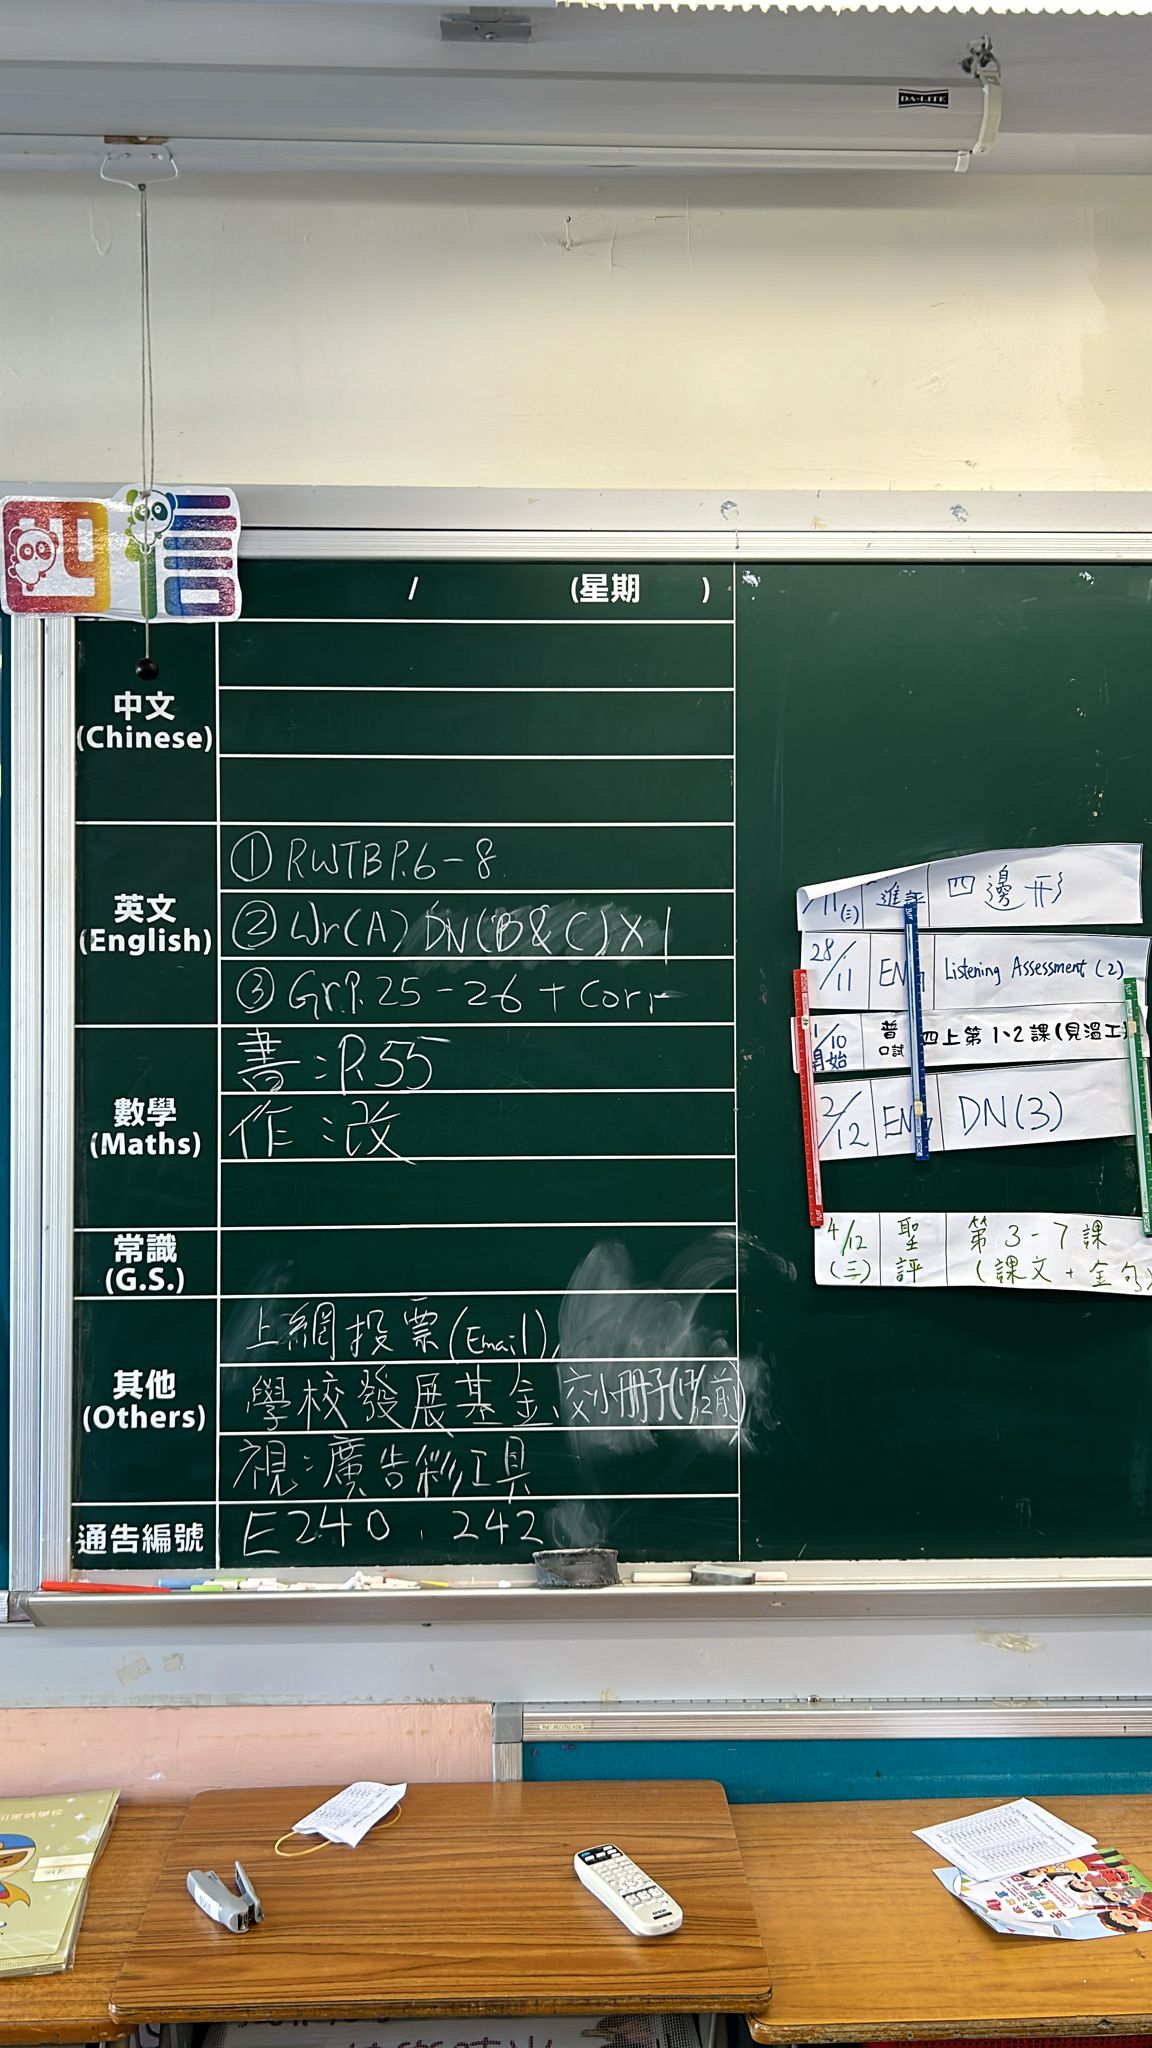 DA-LITE
四信
/ (星期 )
中文
(Chinese)
英文
(English)
① RWTB P.6-8
② Wr(A) DN(B&C)X1
③ Gr.P.25-26 + corr
數學
(Maths)
書:P.55
作:改
常識
(G.S.)
其他
(Others)
上網投票(Email),
學校發展基金、交小冊子(17/12前)
視:廣告彩工具
通告編號
E240, 242
/11 (三) 進評 四邊形
28/11 ENG Listening Assessment (2)
1/10 開始 普 口試 四上第1、2課(見溫工)
2/12 ENG DN(3)
4/12 (三) 聖評 第3-7課 (課文+金句)
EPSON